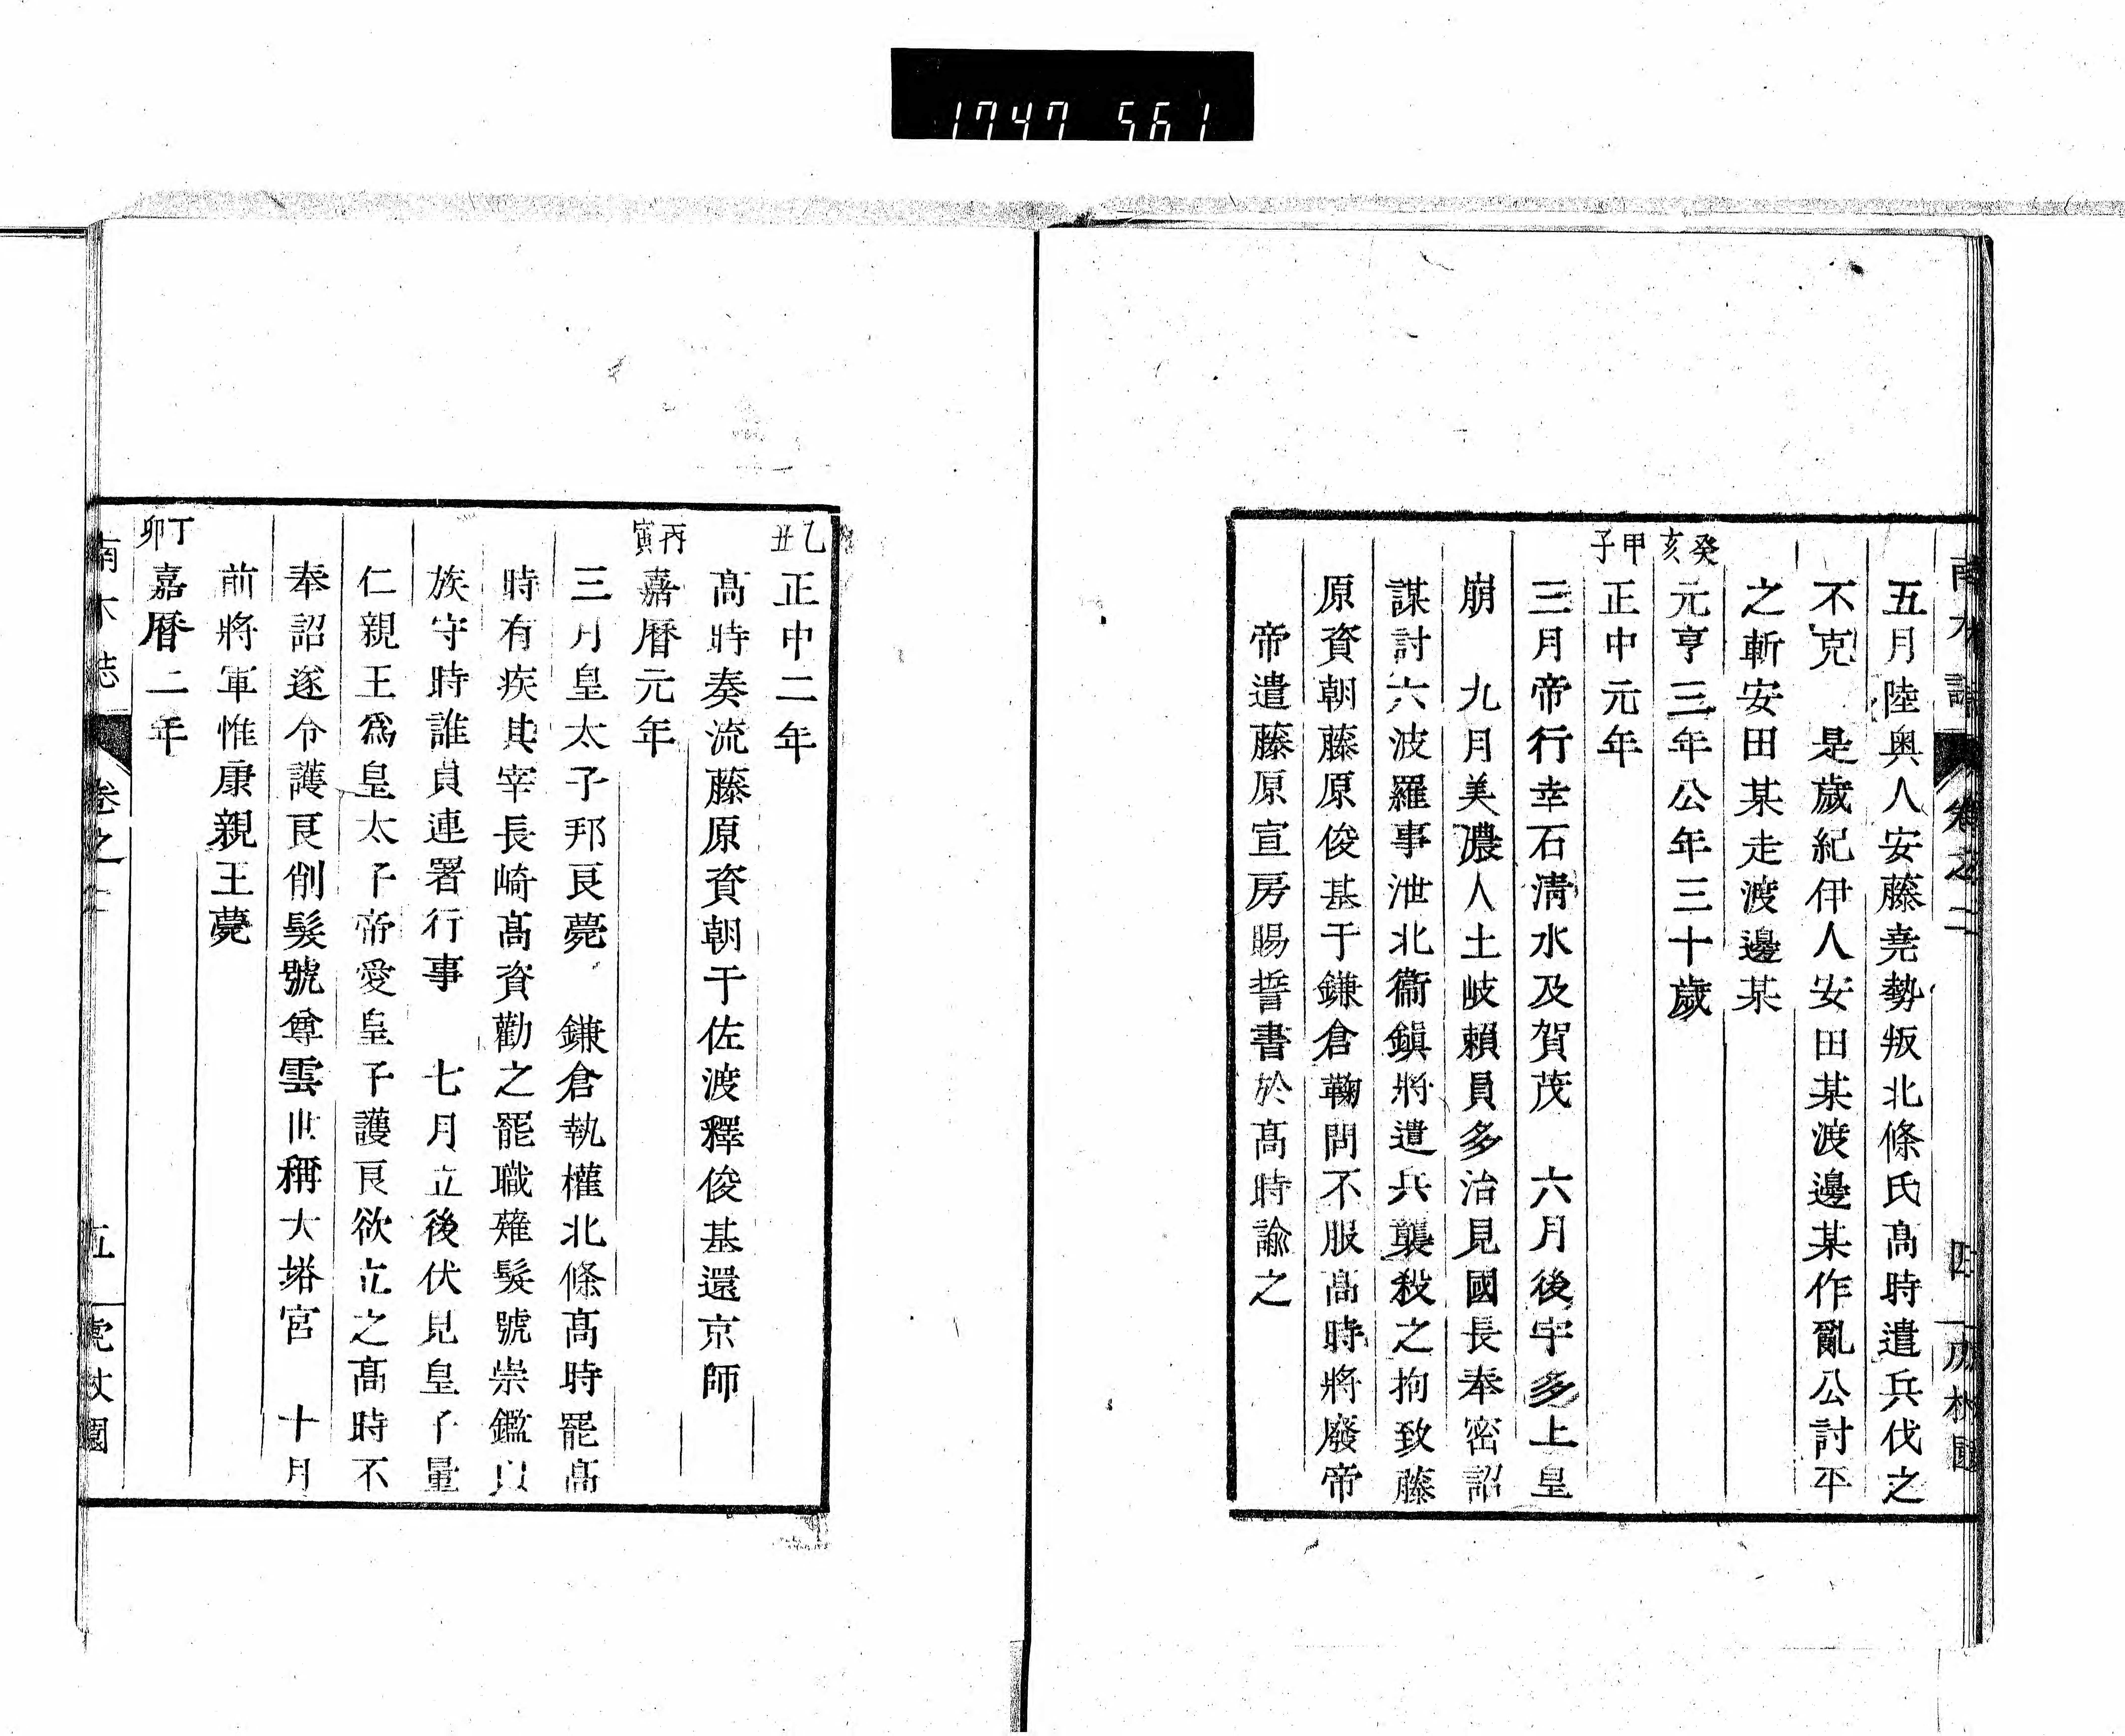 1747 561
南木誌 卷之二 四
五月陸奧人安藤堯勢叛北條氏高時遣兵伐之
不克 是歲紀伊人安田某渡邊某作亂公討平
之斬安田某走渡邊某
癸亥 元亨三年公年三十歲
甲子 正中元年
三月帝行幸石淸水及賀茂 六月後宇多上皇
崩 九月美濃人土岐賴員多治見國長奉密詔
謀討六波羅事泄北衞鎭將遣兵襲殺之拘致藤
原資朝藤原俊基于鎌倉鞠問不服高時將廢帝
帝遣藤原宣房賜誓書於髙時諭之
乙丑 正中二年
髙時奏流藤原資朝于佐渡釋俊基還京師
丙寅 嘉曆元年
三月皇太子邦良薨 鎌倉執權北條髙時罷髙
時有疾其宰長崎髙資勸之罷職薙髮號崇鑑以
族守時誰貞連署行事 七月立後伏見皇子量
仁親王爲皇太子帝愛皇子護良欲立之髙時不
奉詔遂令護良削髮號尊雲世稱大塔宮 十月
前將軍惟康親王薨
丁卯 嘉曆二年
南木誌 卷之二 五